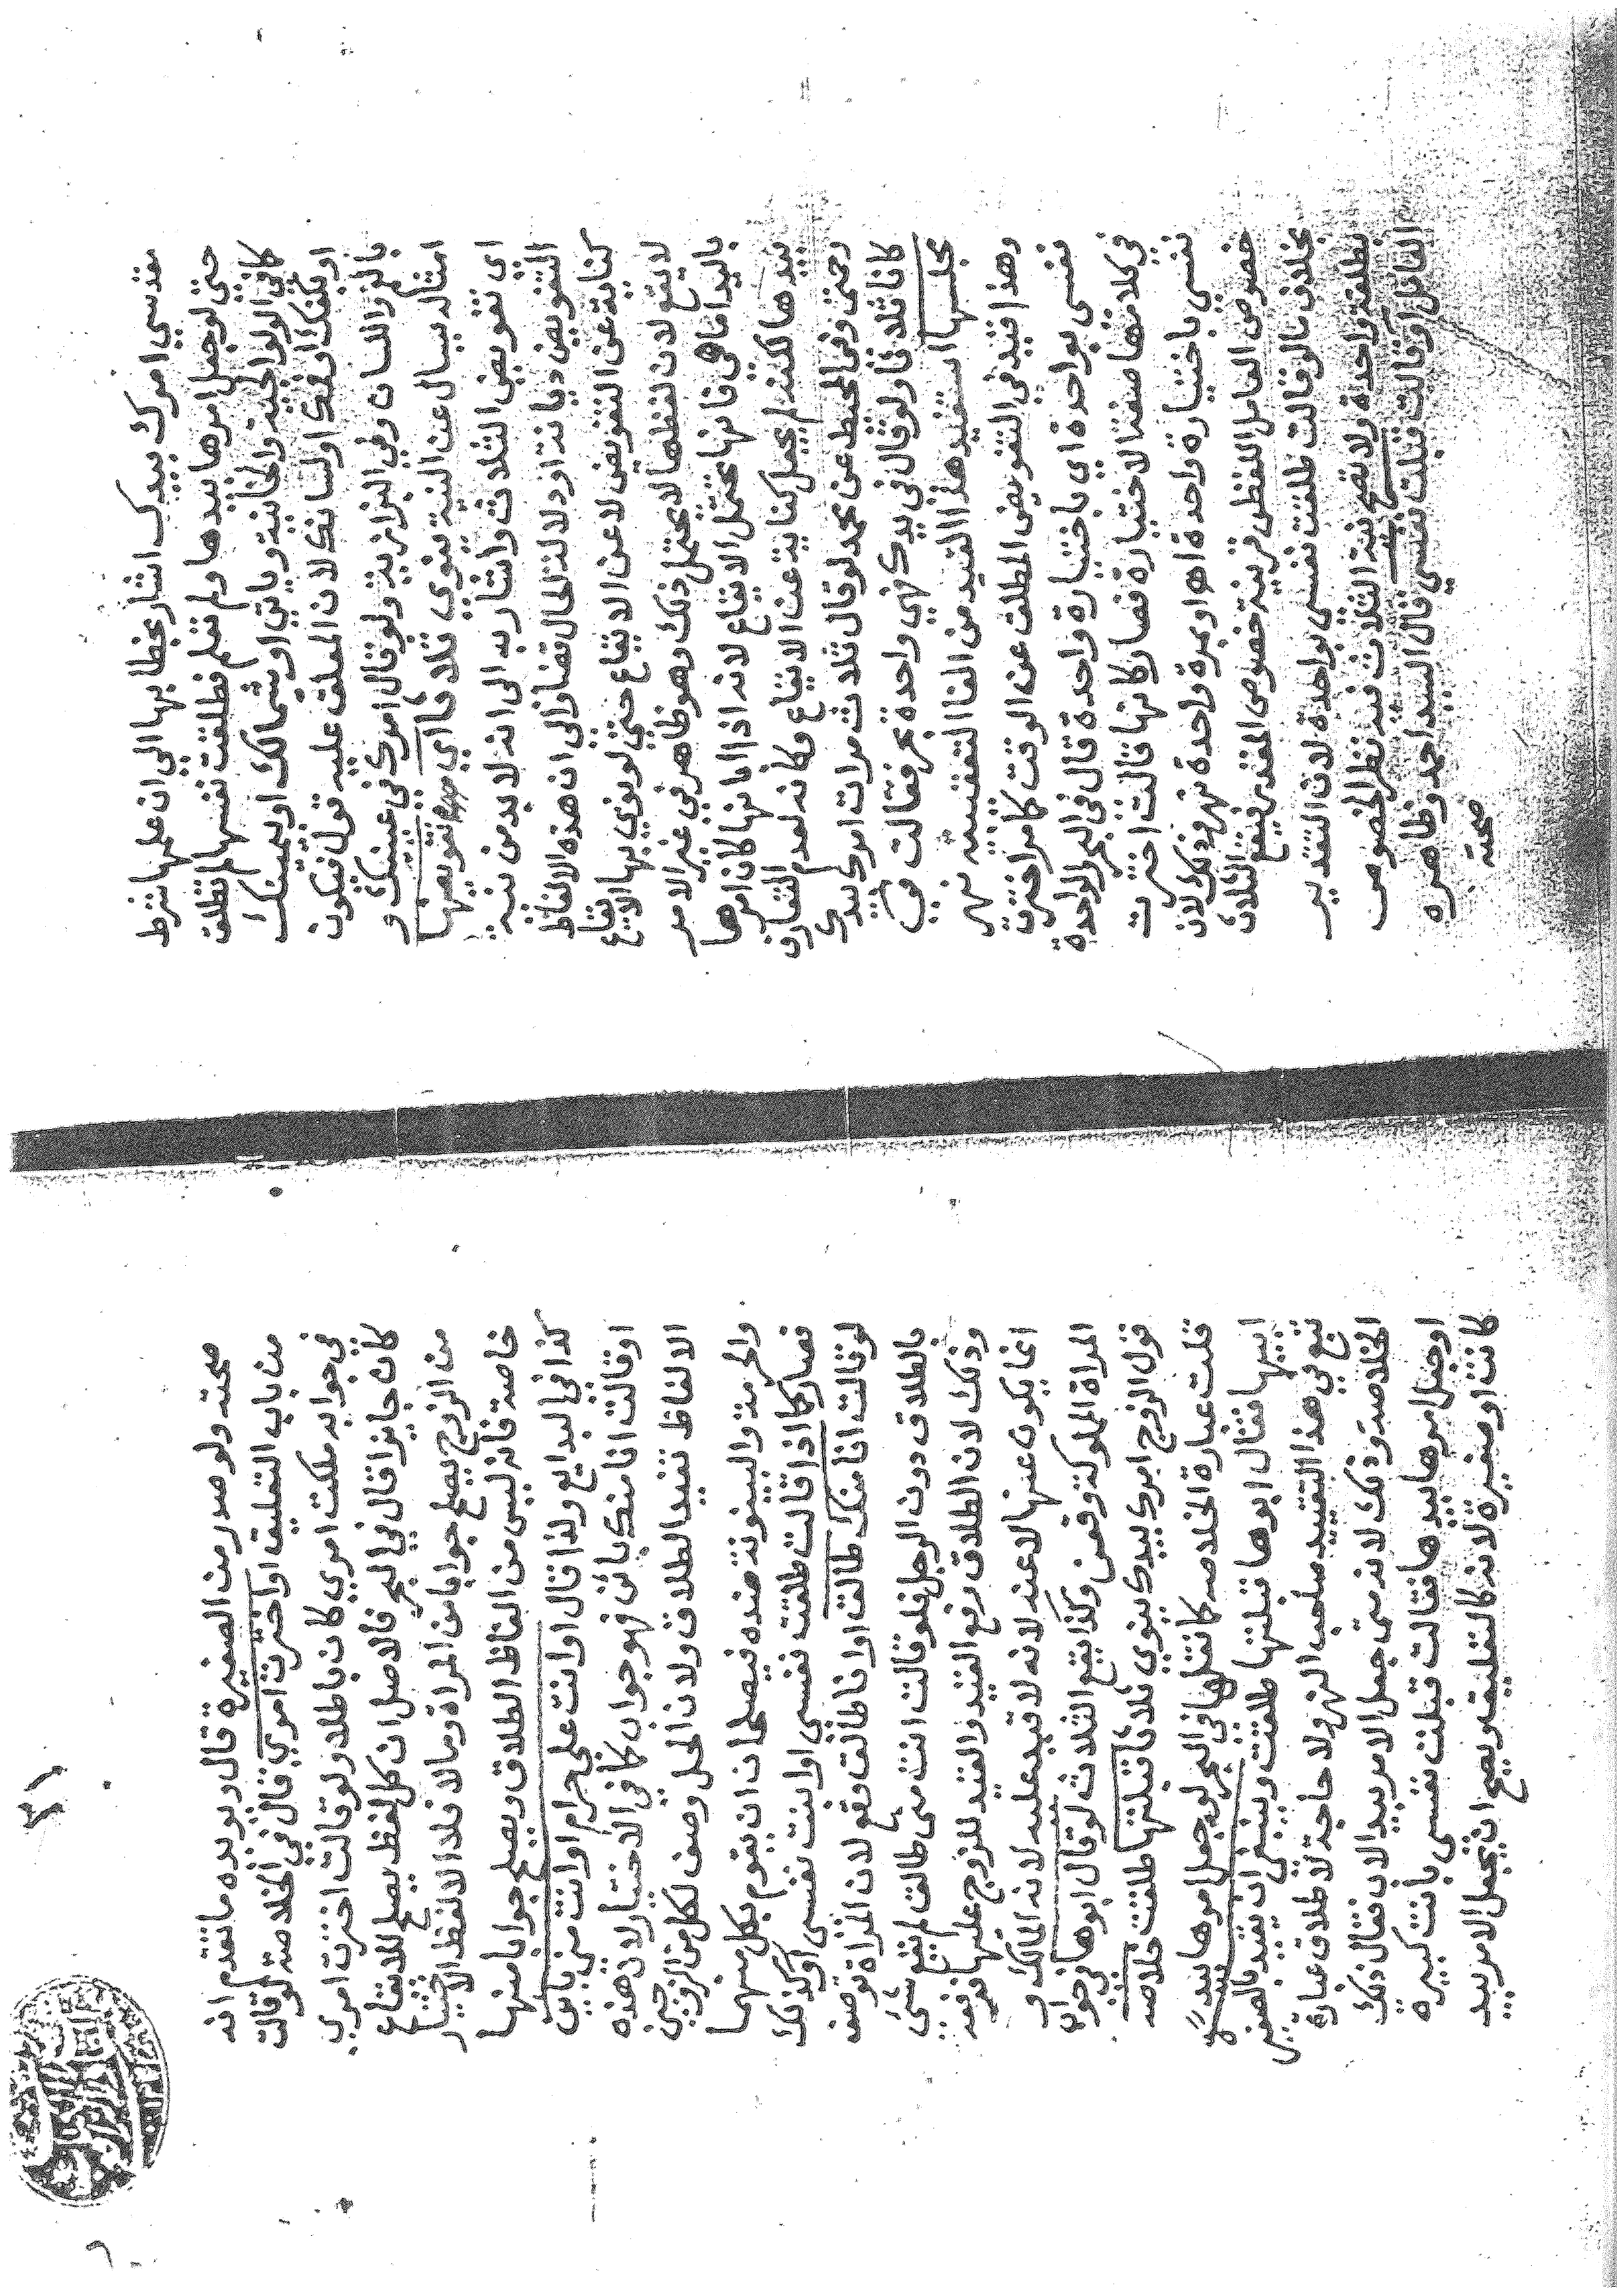 مقدسي امرك بيدك اشار بخطابها الى ان علمها شرط
حتى لو جعل امرها بيدها ولم تعلم فطلقت نفسها لم تطلق
كما في الولوالجية والخانية وياتي او شمالك او يمينك
او بكفك او فمك او لسانك لان المعلق عليه قوله فيكون
بالغم واللسان وفي البزازية ولو قال امرك في عينيك و
امثاله يسال عن النية ينوي ثلاثا اي تفويضها
اى تفويض الثلاث واشار به الى انه لا بد من نية
التفويض ديانة او دلالة الحال قضا والى ان هذه الالفاظ
كناية عن التفويض لا عن الايقاع حتى لو نوى بها الايقاع
لا يقع لان لفظها لا يحتمل ذلك وهو ظاهر في غير الامر
باليد اما هي فانها تحتمل الايقاع لانه اذا ابانها كان امرها
بيدها لكنه لم يجعل كناية عن الايقاع وكانه لعدم التعارف
رحمتى وفي المحيط عن محمد لو قال ثلاث مرات امرك بيدك
كانا ثلاثا ولو قال في يدك فهي واحدة بحر فقالت في
مجلسها استفيد هذا القيد من الفا التعقيبيه نهر
وهذا قيد في التفويض المطلق عن الوقت كما مر اخترت
نفسى بواحدة اي باختيارة واحدة قال في البحر الواحدة
في كلامها صفة لاختيارة فصار كانها قالت اخترت
نفسي باختيارة واحدة اه او بمرة واحدة نهر وذلك لان
خصوص العامل اللفظى قرينة خصوص المقدر فيقع الثلاث
بخلاف ما لو قالت طلقت نفسى بواحدة لان التقدير
بطلقة واحدة ولا تصح نية الثلاث فيه نظر الخصوص
العامل او قالت قبلت نفسي قال السيد احمد وظاهره
صحته
صحته ولو صدر من الصغيرة قال ويويده ما تقدم انه
من باب التعليق او اخترت امري قال في الخلاصة لو قالت
في جوابه ملكت امري كان باطلا ولو قالت اخترت امري
كان جايزا قال في البحر فالاصل ان كل لفظ يصلح للايقاع
من الزوج يصلح جوابا من المراة وما لا فلا الا لفظ الاختيار
خاصة فانه ليس من الفاظ الطلاق ويصلح جوابا منها
كذا في البدايع ولذا قال او انت على حرام او انت مني باين
او قالت انا منك بائن فهو جواب كما في الاختيار لان هذه
الالفاظ تفيد الطلاق ولان الحل وصف لكل من الزوجين
والحرمة والبينونة ضده فيصلحان ان يقوم بكل منهما
فصار كما اذا قالت طلقت نفسى او ابنت نفسى وكذلك
لو قالت انا منك طالق او انا طالق وقع لان المراة توصف
بالطلاق دون الرجل فلو قالت انت منى طالق لم يقع شئ
وذلك لان الطلاق رفع القيد والقيد للزوج عليها فرفعه
انما يكون عنها لا عنه لانه لا قيد عليه لانه المالك و
المراة المملوكة وقس وكذا يقع الثلاث لو قال ابوها في جواب
قول الزوج امرك بيدك ينوي ثلاثا قبلتها طلقت خلاصه
قلت عبارة الخلاصه كما نقلها في البحر لو جعل امرها بيد
ابيها فقال ابوها قبلتها طلقت وينبغى ان يقيد بالصغيرة
تتبع في هذا التقييد صاحب النهر ولا حاجة لاطلاق عبارة
الخلاصة وذلك لانه متى جعل الامر بيد الاب فقال ذلك
او جعل امرها بيدها فقالت قبلت نفسى بانت كبيره
كانت او صغيرة لانه كالتعليق ويصح ان يجعل الامر بيد